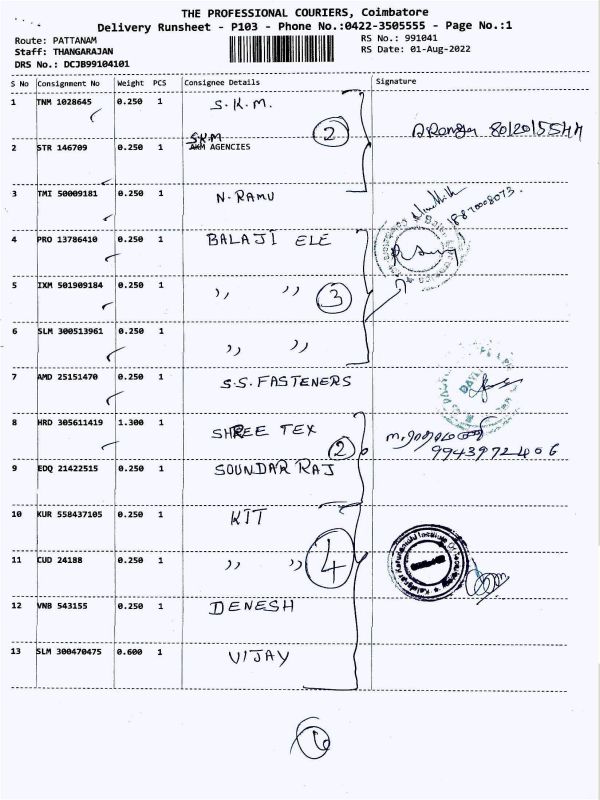 THE PROFESSIONAL COURIERS, Coimbatore
Delivery Runsheet - P103 - Phone No.:0422-3505555 - Page No.:1
Route: PATTANAM RS No.: 991041
Staff: THANGARAJAN RS Date: 01-Aug-2022
DRS No.: DCJB99104101
S No Consignment No Weight PCS Consignee Details Signature
1 TNM 1028645 0.250 1 S.K.M.
2
SKM
2 STR 146709 0.250 1 AKM AGENCIES
3 TMI 50009181 0.250 1 N. RAMU
4 PRO 13786410 0.250 1 BALAJI ELE
5 IXM 501909184 0.250 1 ,, ,, 3
6 SLM 300513961 0.250 1 ,, ,,
7 AMD 25151470 0.250 1 S.S. FASTENERS
8 HRD 305611419 1.300 1 SHREE TEX
2 9943972406
9 EDQ 21422515 0.250 1 SOUNDAR RAJ
10 KUR 558437105 0.250 1 KIT
11 CUD 24188 0.250 1 ,, ,, 4
12 VNB 543155 0.250 1 DENESH
13 SLM 300470475 0.600 1 VIJAY